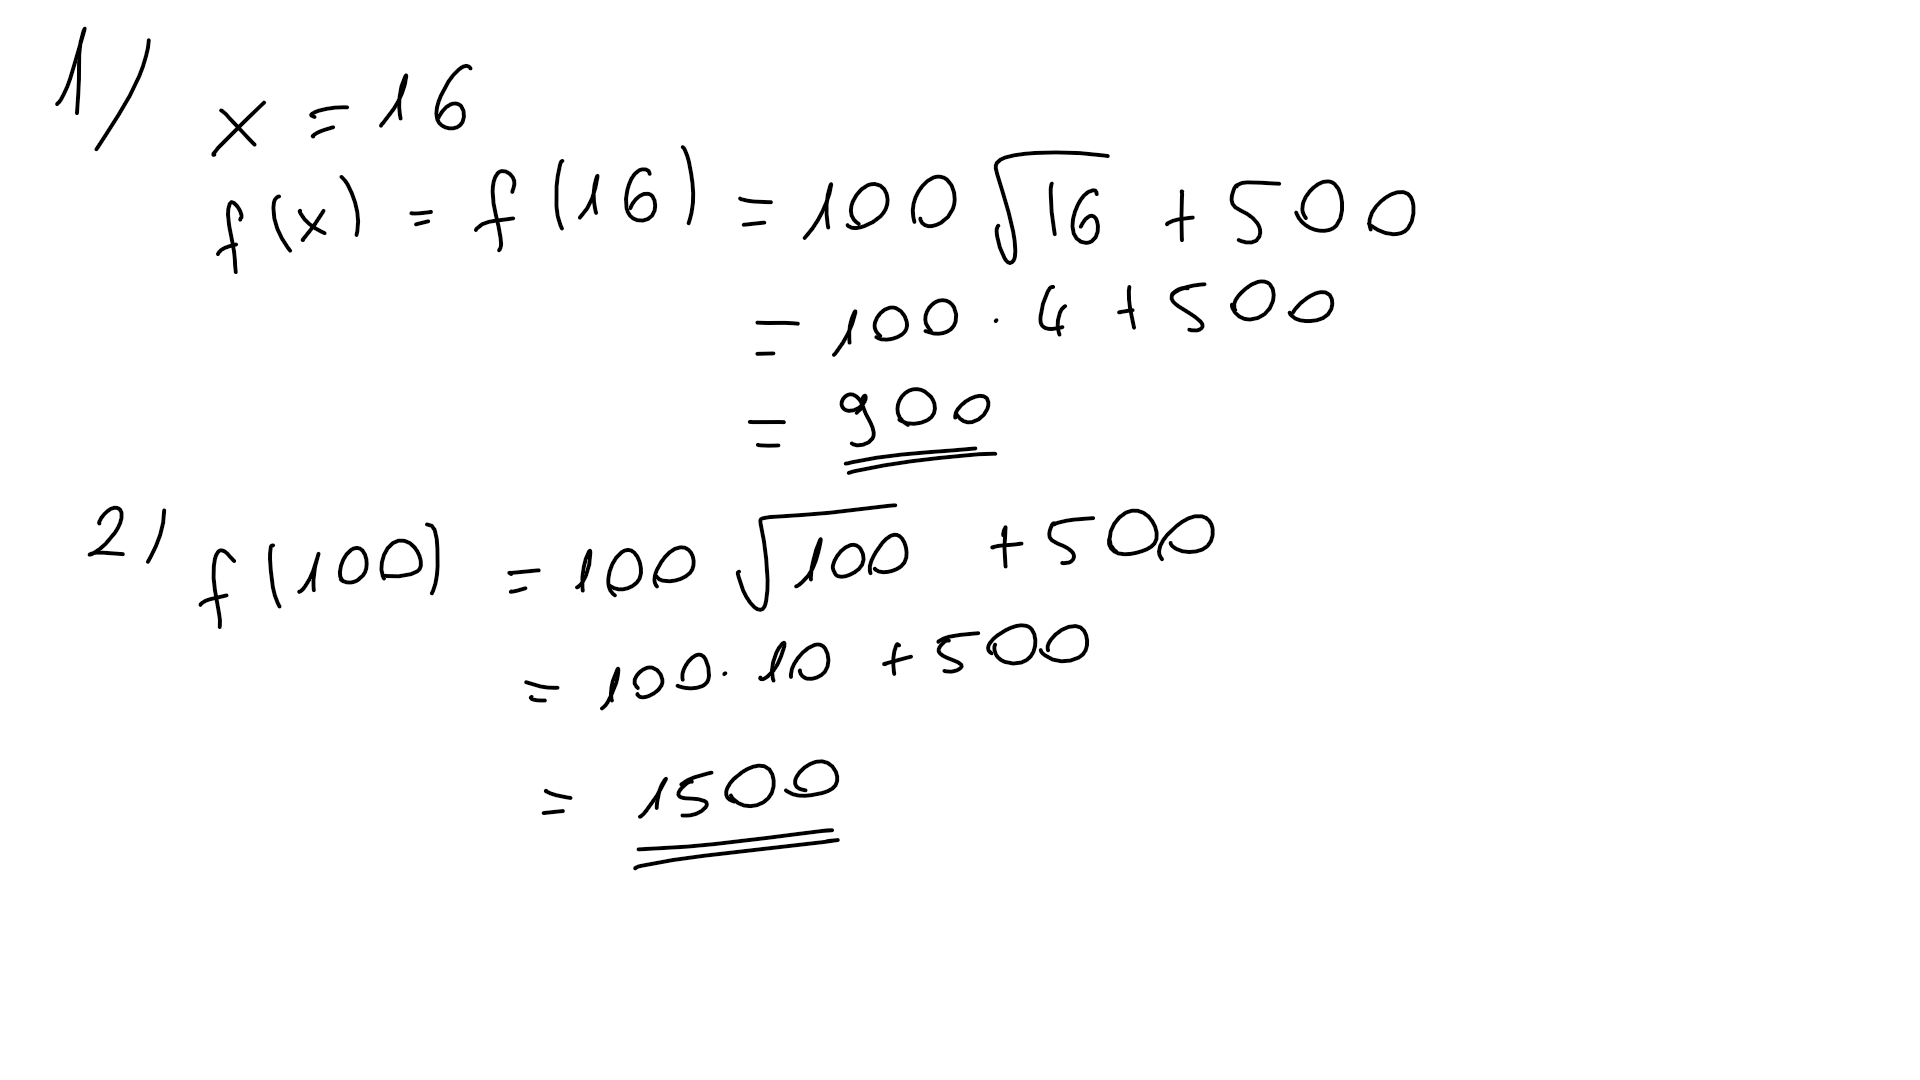 1) x = 16
f(x) = f(16) = 100 √16 + 500
= 100 · 4 + 500
= 900
2) f(100) = 100 √100 + 500
= 100 · 10 + 500
= 1500